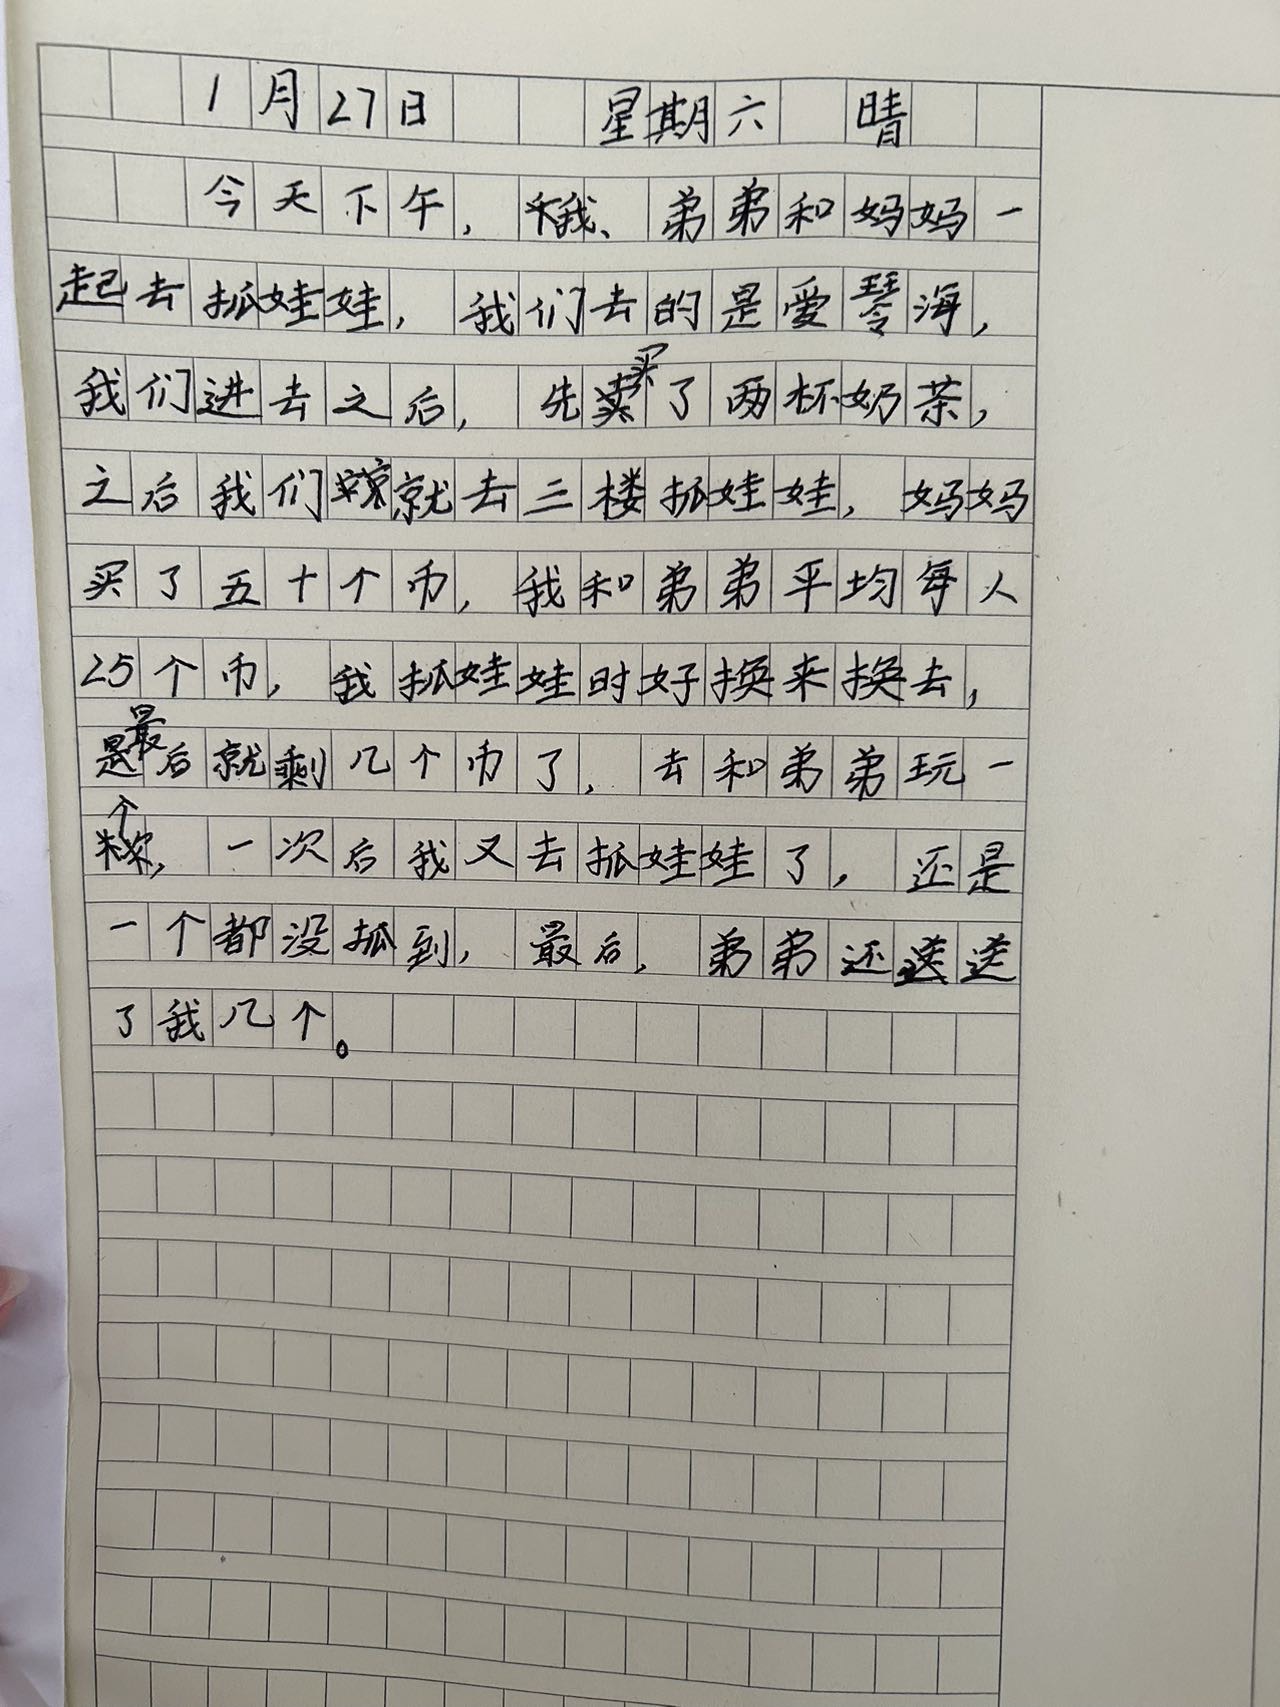 1月27日 星期六 晴
今天下午，我、弟弟和妈妈一
起去抓娃娃，我们去的是爱琴海，
我们进去之后，先买了两杯奶茶，
之后我们就去三楼抓娃娃，妈妈
买了五十个币，我和弟弟平均每人
25个币，我抓娃娃时好换来换去，
最后就剩几个币了，去和弟弟玩一
个，一次后我又去抓娃娃了，还是
一个都没抓到，最后，弟弟还送
了我几个。